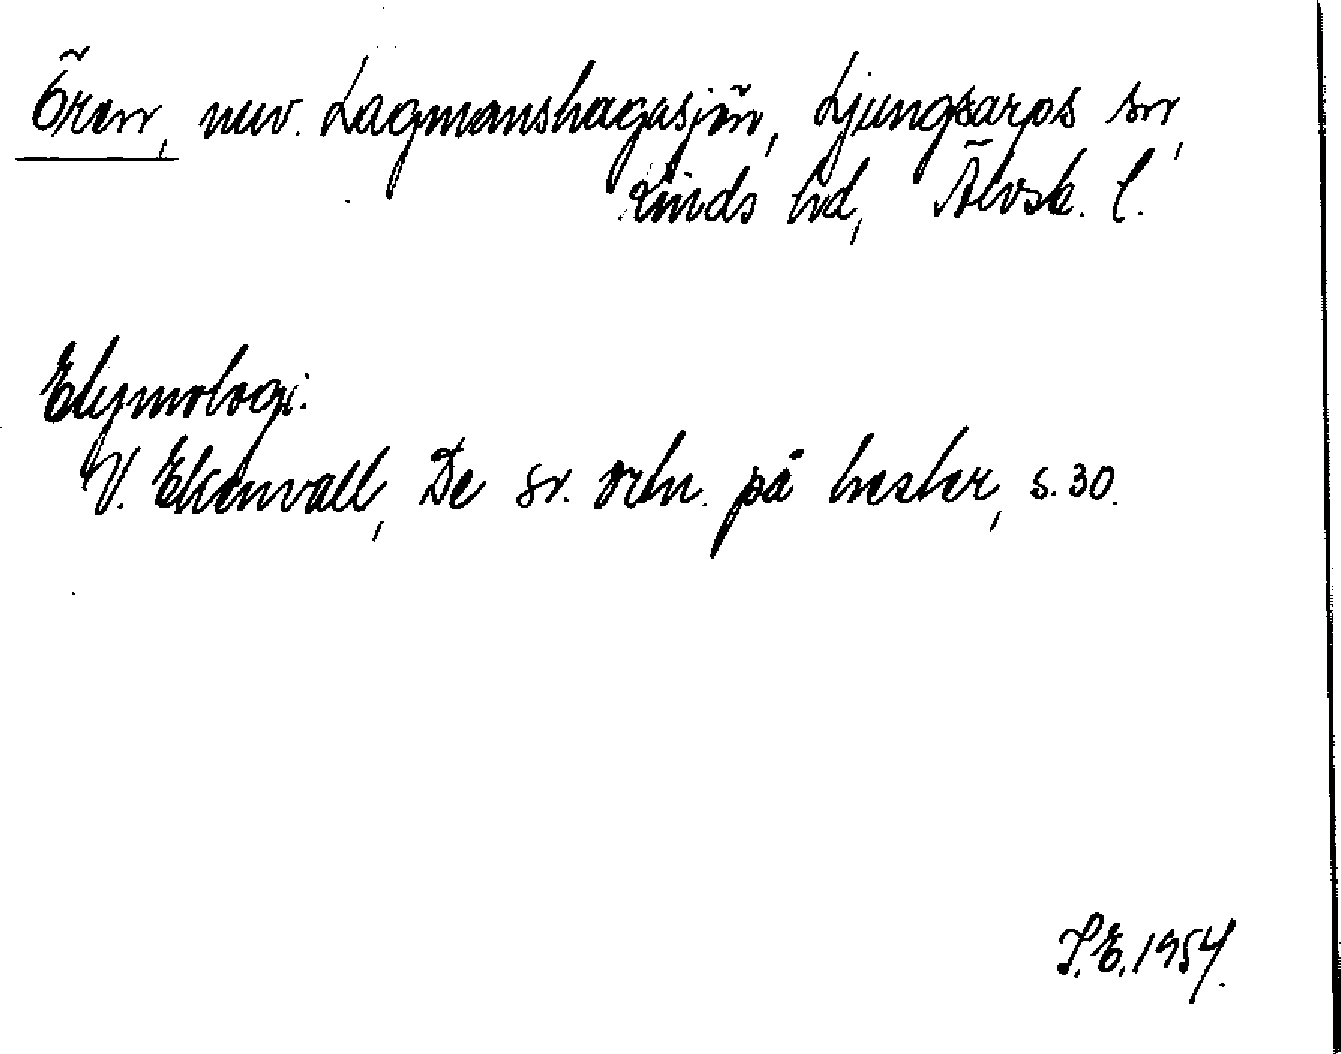 Ören, nuv. Lagmanshagasjön, Ljungsarps sn,
Kinds hd, Älvsb. l.
Etymologi:
V. Ekenvall, De sv. ortn. på hester, s. 30.
S.E. 1954.